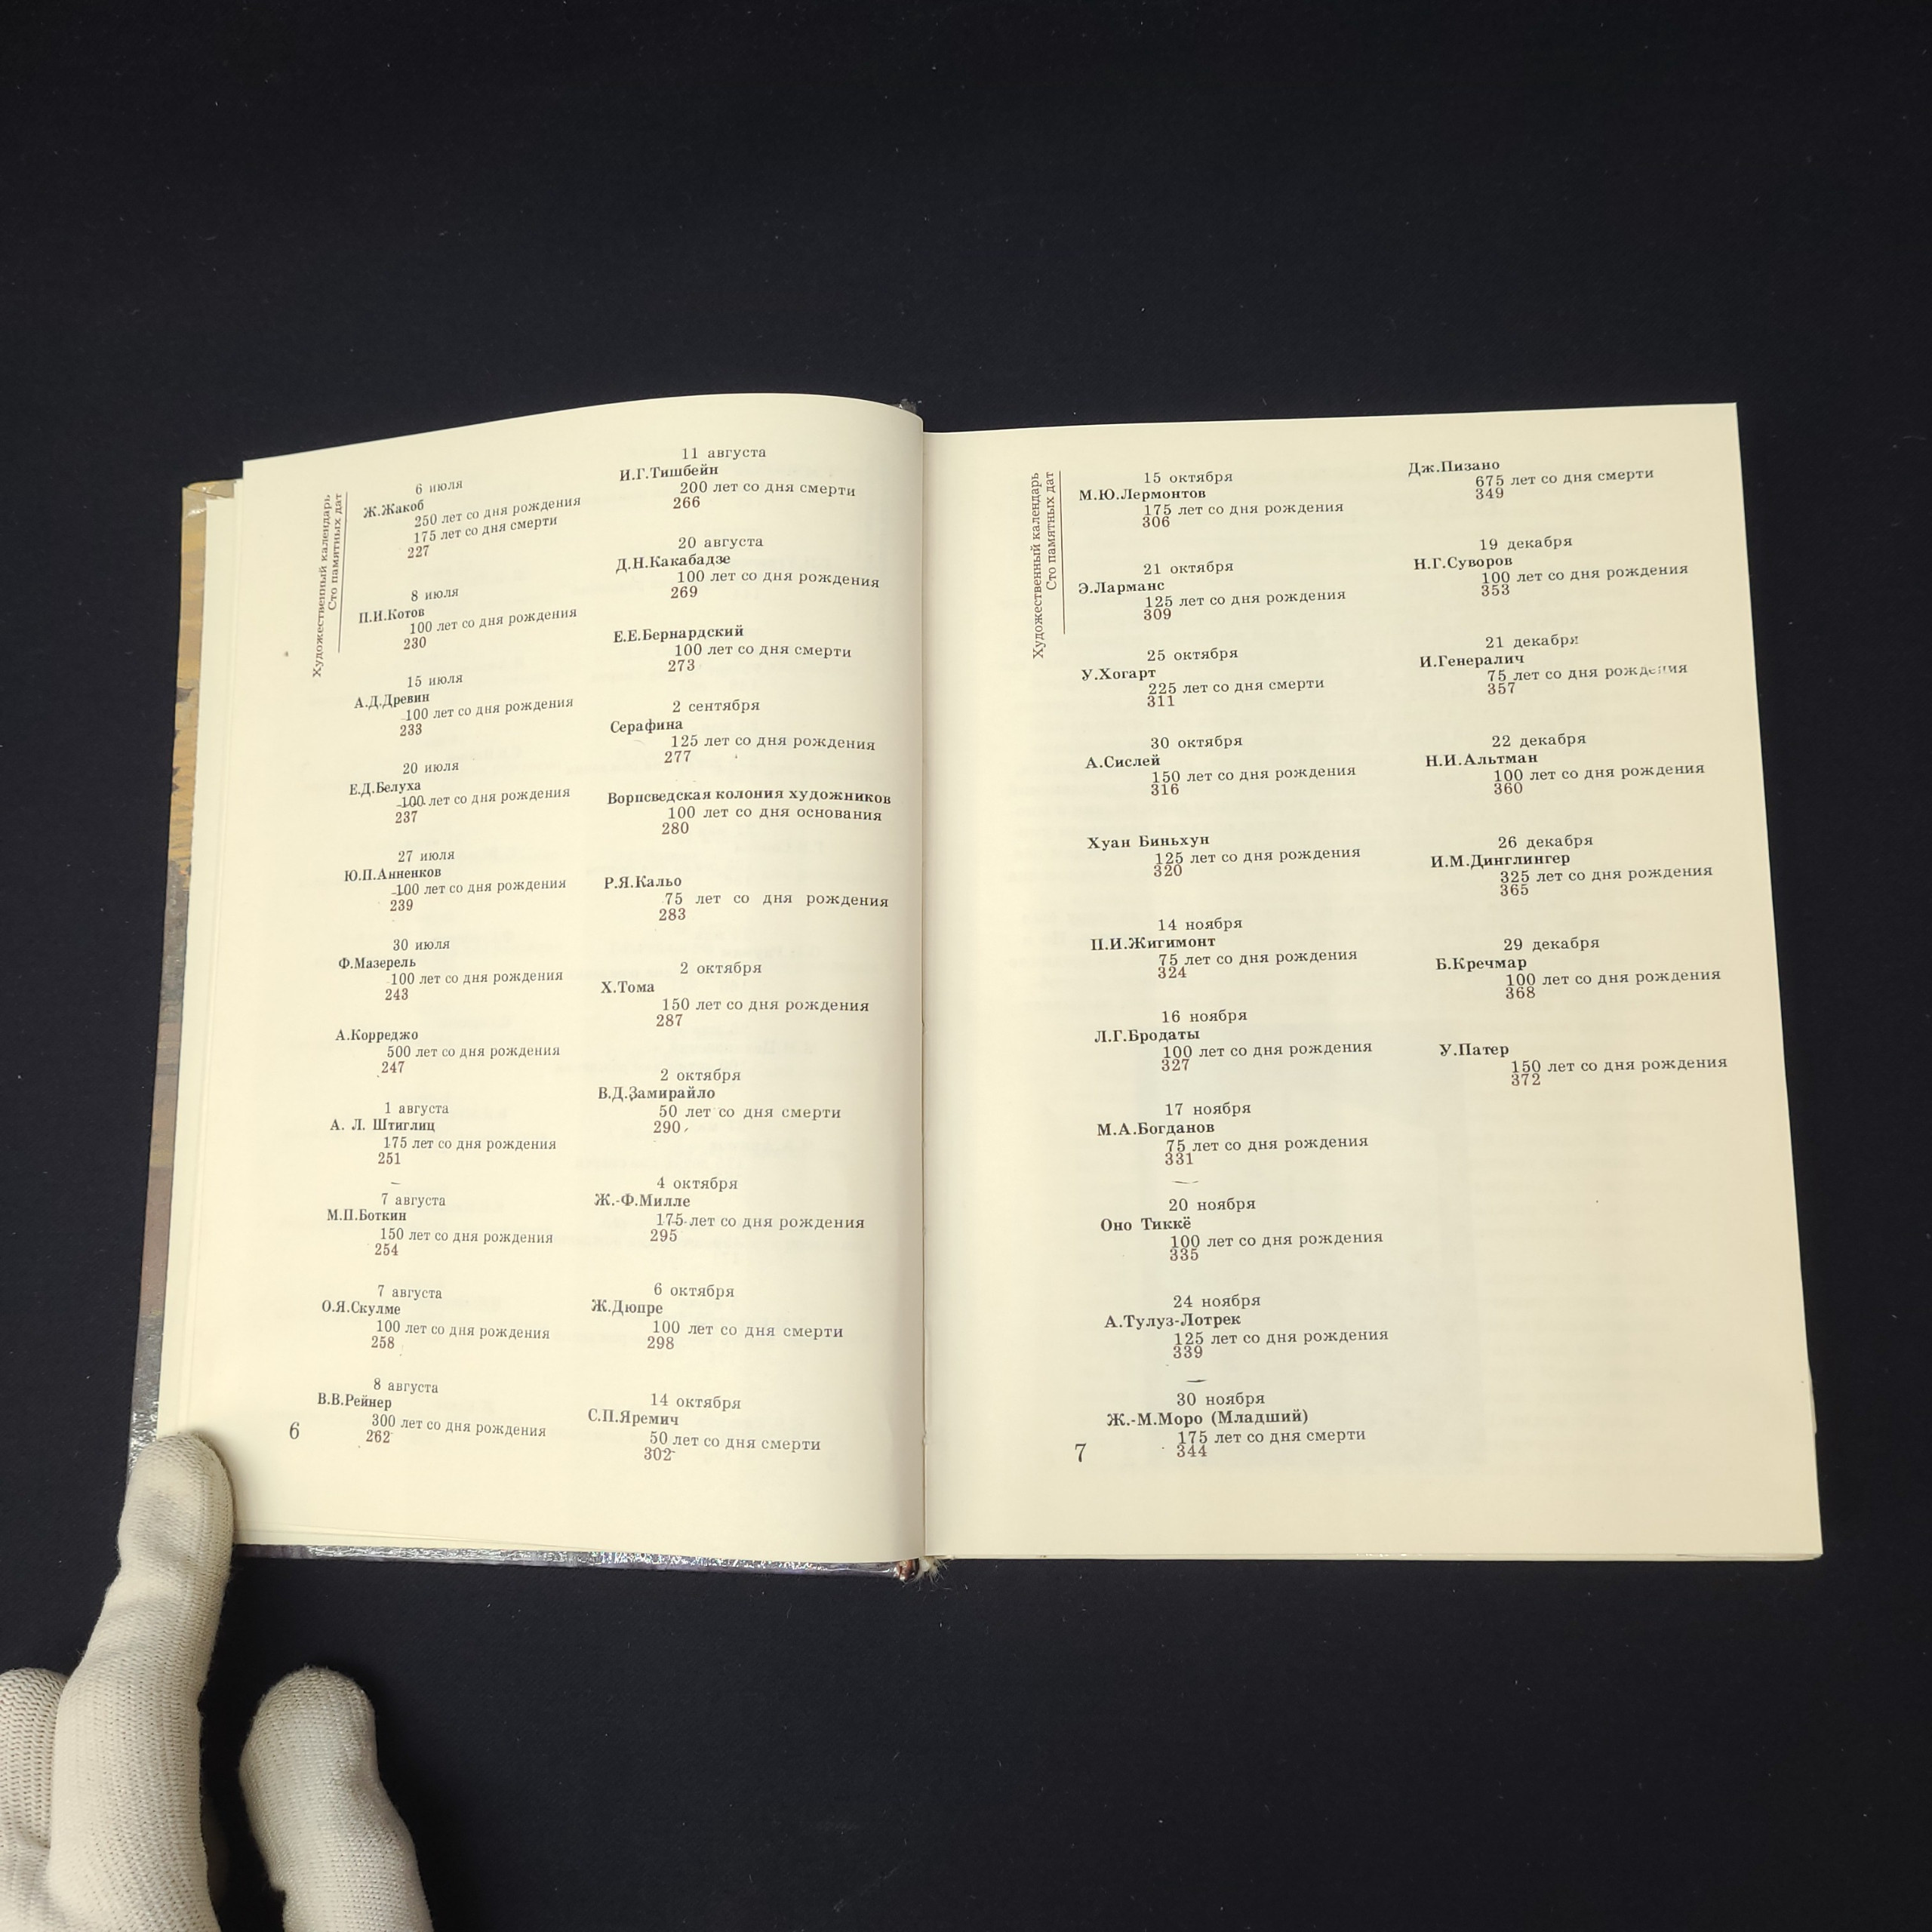 Художественный календарь
Сто памятных дат
6 июля
Ж.Жакоб
250 лет со дня рождения
175 лет со дня смерти
227
8 июля
П.И.Котов
100 лет со дня рождения
230
15 июля
А.Д.Древин
100 лет со дня рождения
233
20 июля
Е.Д.Белуха
100 лет со дня рождения
237
27 июля
Ю.П.Анненков
100 лет со дня рождения
239
30 июля
Ф.Мазерель
100 лет со дня рождения
243
А.Корреджо
500 лет со дня рождения
247
1 августа
А. Л. Штиглиц
175 лет со дня рождения
251
7 августа
М.П.Боткин
150 лет со дня рождения
254
7 августа
О.Я.Скулме
100 лет со дня рождения
258
8 августа
В.В.Рейнер
300 лет со дня рождения
262
6
11 августа
И.Г.Тишбейн
200 лет со дня смерти
266
20 августа
Д.Н.Какабадзе
100 лет со дня рождения
269
Е.Е.Бернардский
100 лет со дня смерти
273
2 сентября
Серафина
125 лет со дня рождения
277
Ворпсведская колония художников
100 лет со дня основания
280
Р.Я.Кальо
75 лет со дня рождения
283
2 октября
Х.Тома
150 лет со дня рождения
287
2 октября
В.Д.Замирайло
50 лет со дня смерти
290
4 октября
Ж.-Ф.Милле
175 лет со дня рождения
295
6 октября
Ж.Дюпре
100 лет со дня смерти
298
14 октября
С.П.Яремич
50 лет со дня смерти
302
Художественный календарь
Сто памятных дат
15 октября
М.Ю.Лермонтов
175 лет со дня рождения
306
21 октября
Э.Ларманс
125 лет со дня рождения
309
25 октября
У.Хогарт
225 лет со дня смерти
311
30 октября
А.Сислей
150 лет со дня рождения
316
Хуан Биньхун
125 лет со дня рождения
320
14 ноября
П.И.Жигимонт
75 лет со дня рождения
324
16 ноября
Л.Г.Бродаты
100 лет со дня рождения
327
17 ноября
М.А.Богданов
75 лет со дня рождения
331
20 ноября
Оно Тиккё
100 лет со дня рождения
335
24 ноября
А.Тулуз-Лотрек
125 лет со дня рождения
339
30 ноября
Ж.-М.Моро (Младший)
175 лет со дня смерти
344
7
Дж.Пизано
675 лет со дня смерти
349
19 декабря
Н.Г.Суворов
100 лет со дня рождения
353
21 декабря
И.Генералич
75 лет со дня рождения
357
22 декабря
Н.И.Альтман
100 лет со дня рождения
360
26 декабря
И.М.Динглингер
325 лет со дня рождения
365
29 декабря
Б.Кречмар
100 лет со дня рождения
368
У.Патер
150 лет со дня рождения
372